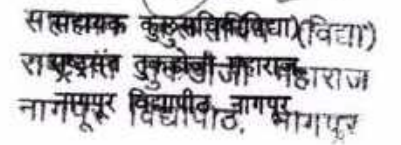 सहायक कुलसचिव (विद्या)
राष्ट्रसंत तुकडोजी महाराज
नागपूर विद्यापीठ, नागपूर